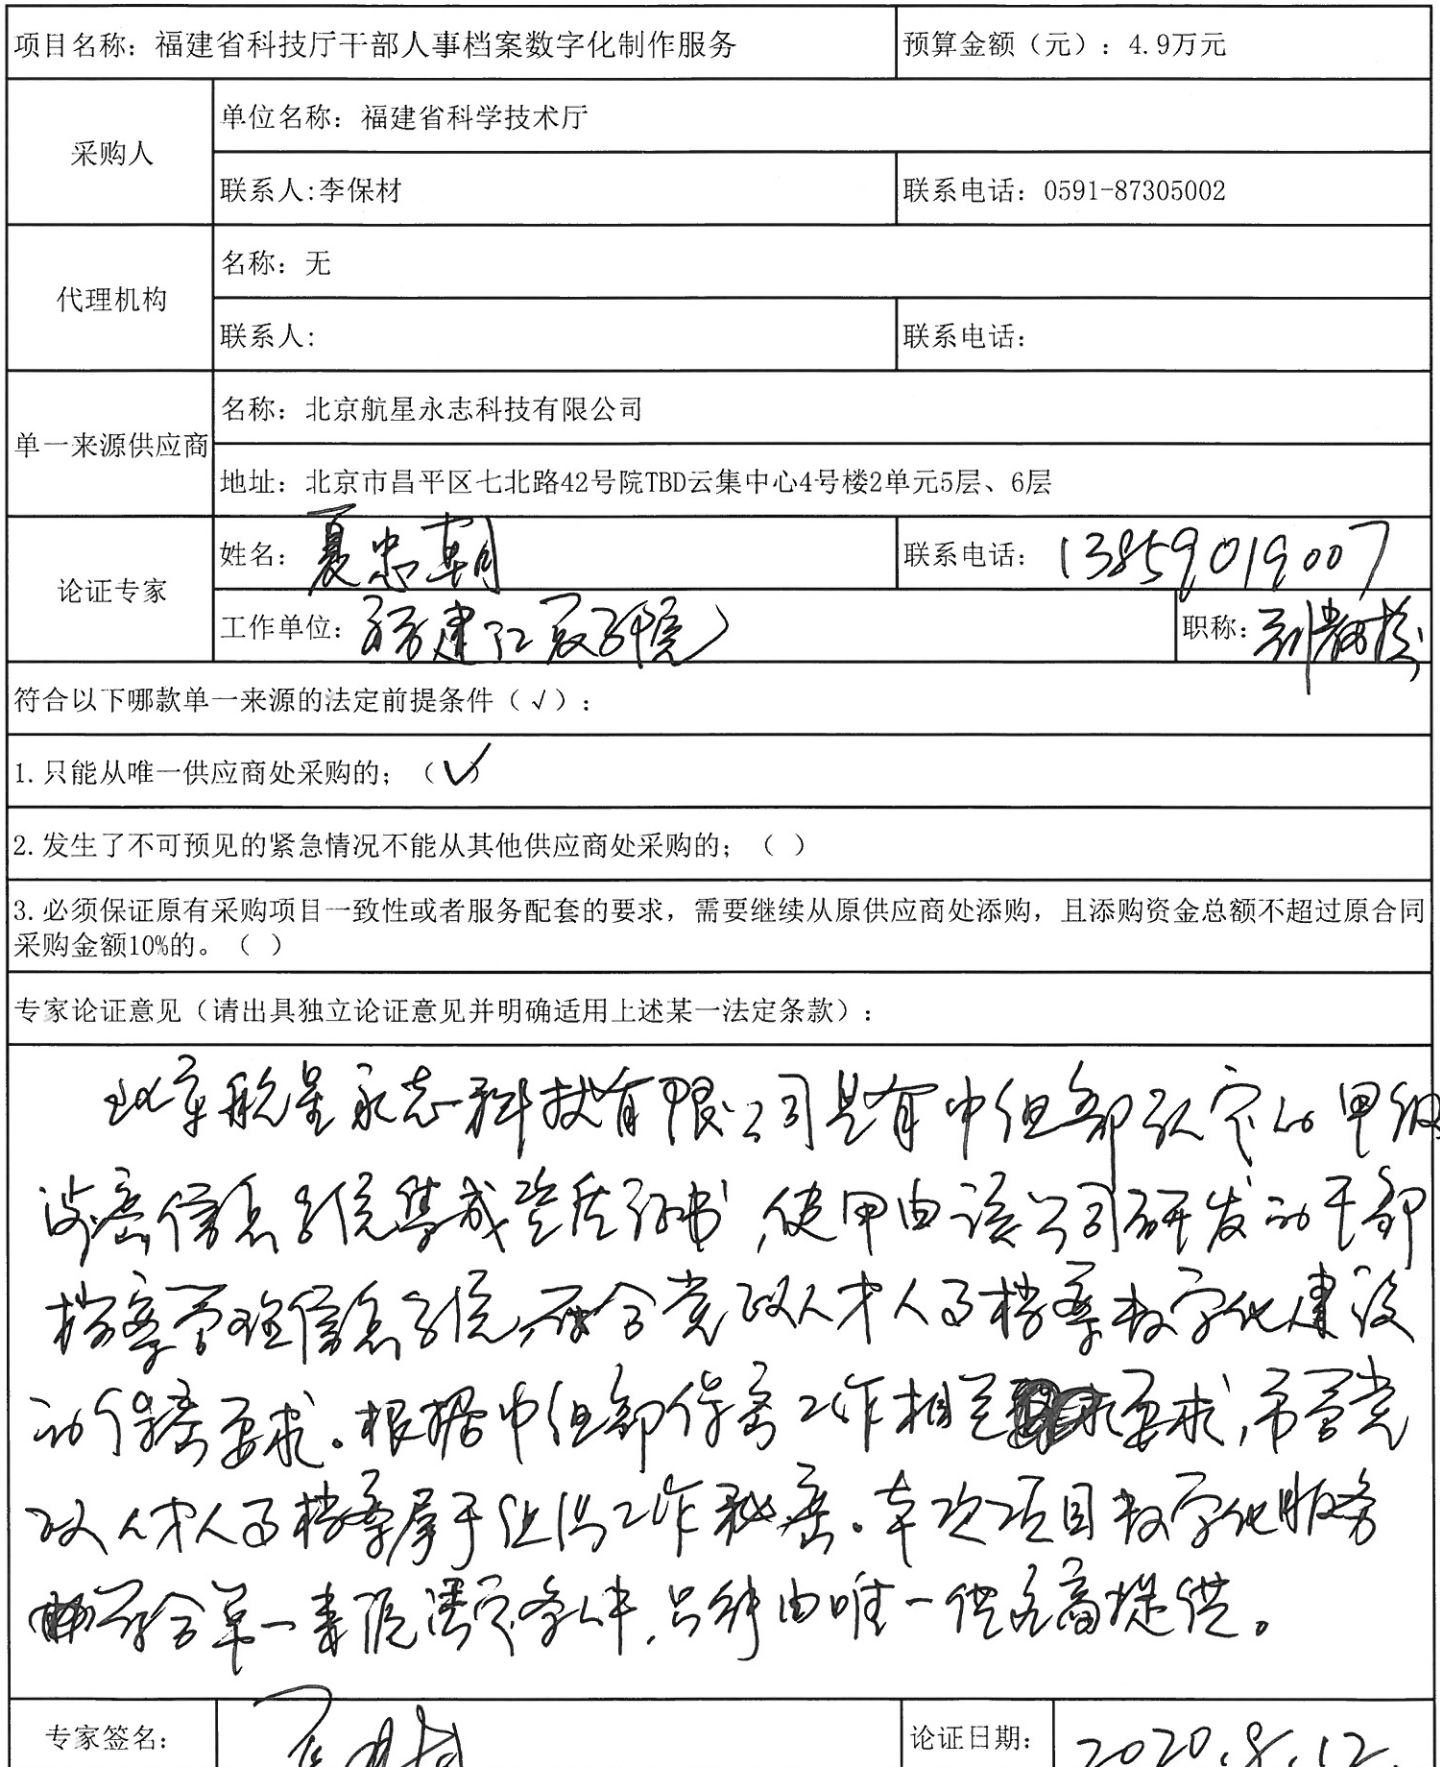 项目名称：福建省科技厅干部人事档案数字化制作服务
预算金额（元）：4.9万元
采购人
单位名称：福建省科学技术厅
联系人:李保材
联系电话：0591-87305002
代理机构
名称：无
联系人:
联系电话：
单一来源供应商
名称：北京航星永志科技有限公司
地址：北京市昌平区七北路42号院TBD云集中心4号楼2单元5层、6层
论证专家
姓名：夏忠朝
联系电话：13859019007
工作单位：福建江夏学院
职称：副教授
符合以下哪款单一来源的法定前提条件（√）：
1.只能从唯一供应商处采购的；（✓）
2.发生了不可预见的紧急情况不能从其他供应商处采购的；（ ）
3.必须保证原有采购项目一致性或者服务配套的要求，需要继续从原供应商处添购，且添购资金总额不超过原合同
采购金额10%的。（ ）
专家论证意见（请出具独立论证意见并明确适用上述某一法定条款）：
北京航星永志科技有限公司具有中组部认定的甲级
涉密信息系统集成资质证书，使用由该公司研发的干部
档案管理信息系统，符合党政人才人事档案数字化建设
的保密要求。根据中组部保密工作相关要求，市管党
政人才人事档案属于 工作秘密。本次项目数字化服务
符合单一来源法定条件，只能由唯一供应商提供。
专家签名：
夏忠朝
论证日期：
2020.8.12.